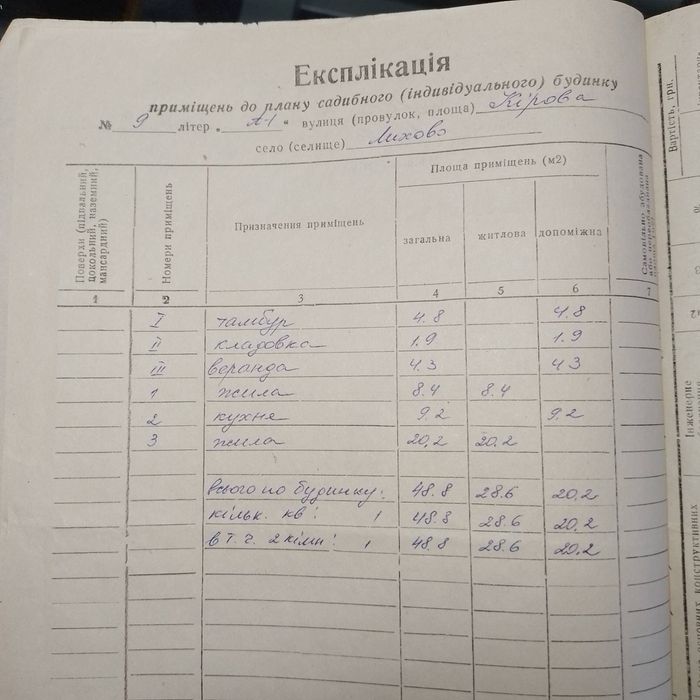 Експлікація
приміщень до плану садибного (індивідуального) будинку
№ 9 літер „ А-1 “ вулиця (провулок, площа) Кірова
село (селище) Лихово
Поверхи (підвальний, цокольний, наземний, мансардний)
Номери приміщень
Призначення приміщень
Площа приміщень (м2)
загальна житлова допоміжна
Самовільно збудована або переобладнана
1 2 3 4 5 6 7
I тамбур 4.8 4.8
II кладовка 1.9 1.9
III веранда 4.3 4.3
1 жила 8.4 8.4
2 кухне 9.2 9.2
3 жила 20.2 20.2
всього по будинку: 48.8 28.6 20.2
кільк. кв: 1 48.8 28.6 20.2
в т.ч. 2 кімн: 1 48.8 28.6 20.2
Вартість, грн.
Інженерне
основних конструктивних